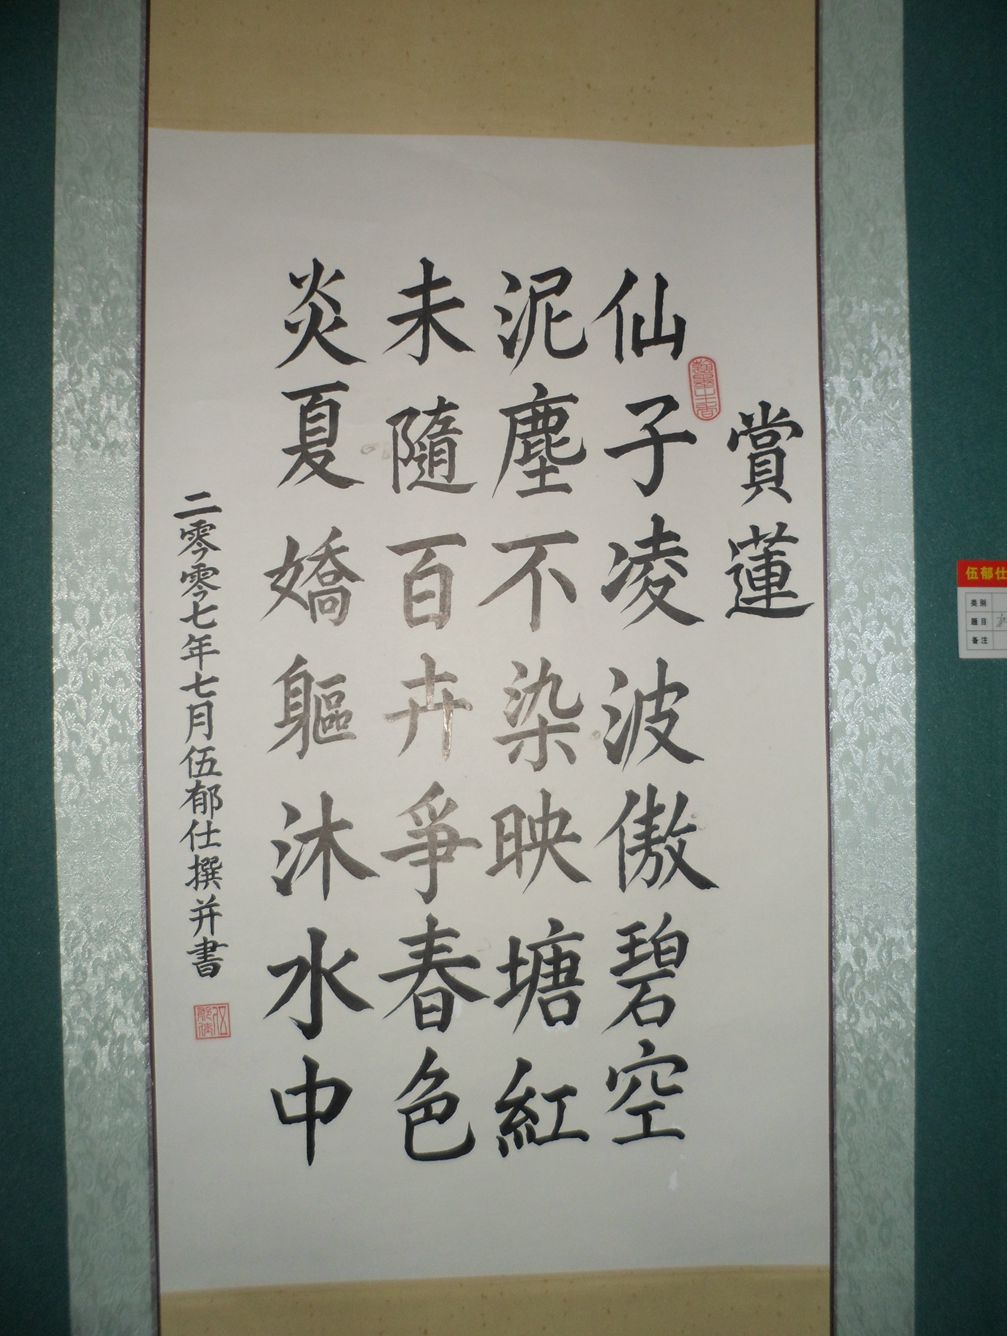 賞蓮
仙子凌波傲碧空
泥塵不染映塘紅
未隨百卉爭春色
炎夏嬌軀沐水中
二零零七年七月伍郁仕撰并書
伍郁仕
类别
题目
备注